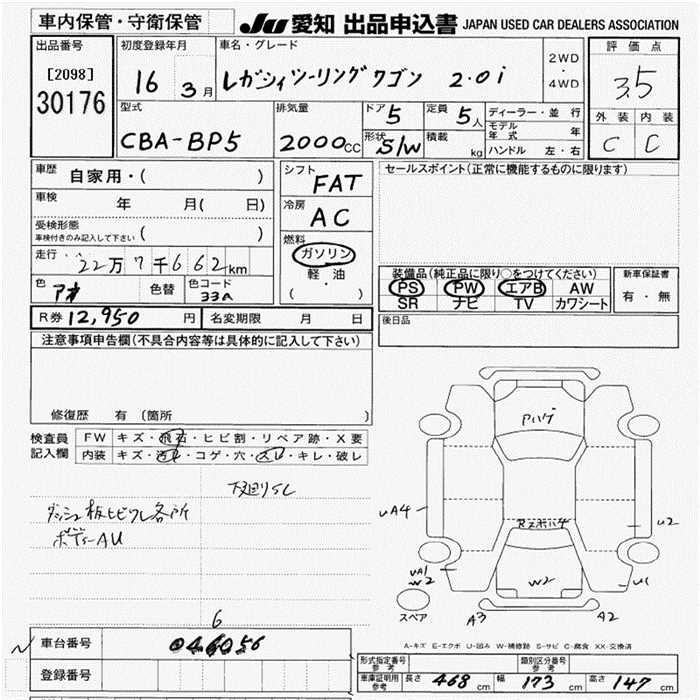 車内保管・守衛保管 JU 愛知 出品申込書 JAPAN USED CAR DEALERS ASSOCIATION
出品番号 初度登録年月 車名・グレード 評価点
[2098] 16 3月 レガシィツーリングワゴン 2.0i 2WD・4WD 3.5
30176
型式 排気量 ドア 5 定員 5人 ディーラー・並行 外装 内装
CBA-BP5 2000CC 形状 S/W 積載 kg モデル年式 年 C C
ハンドル 左・右
車歴 自家用・( ) シフト FAT セールスポイント(正常に機能するものに限ります)
車検 年 月( 日) 冷房 AC
受検形態 ( )
車検付きのみ記入して下さい
燃料 ガソリン
走行 22万7千662km 軽・油
( )
装備品(純正品に限り○をつけてください) 新車保証書
色 アオ 色替 色コード 33A PS PW エアB AW 有・無
SR ナビ TV カワシート
R券 12,950 円 名変期限 月 日 後日品
注意事項申告欄(不具合内容等は具体的に記入して下さい)
修復歴 有 〔箇所
検査員 FW キズ・飛石・ヒビ割・リペア跡・X要
記入欄 内装 キズ・汚れ・コゲ・穴・スレ・キレ・破レ
下回りSC
ダッシュ板ヒビワレ各所
ボデーAU
Aハゲ
UA4 U2
UA1
W2 W2 U1
スペア A3 A2
A-キズ E-エクボ U-凹み W-補修跡 S-サビ C-腐食 XX-交換済
6
車台番号 046056
登録番号
形式指定番号 参考 類別区分番号 参考
車庫証明用 参考 長さ 468 cm 幅 173 cm 高さ 147 cm